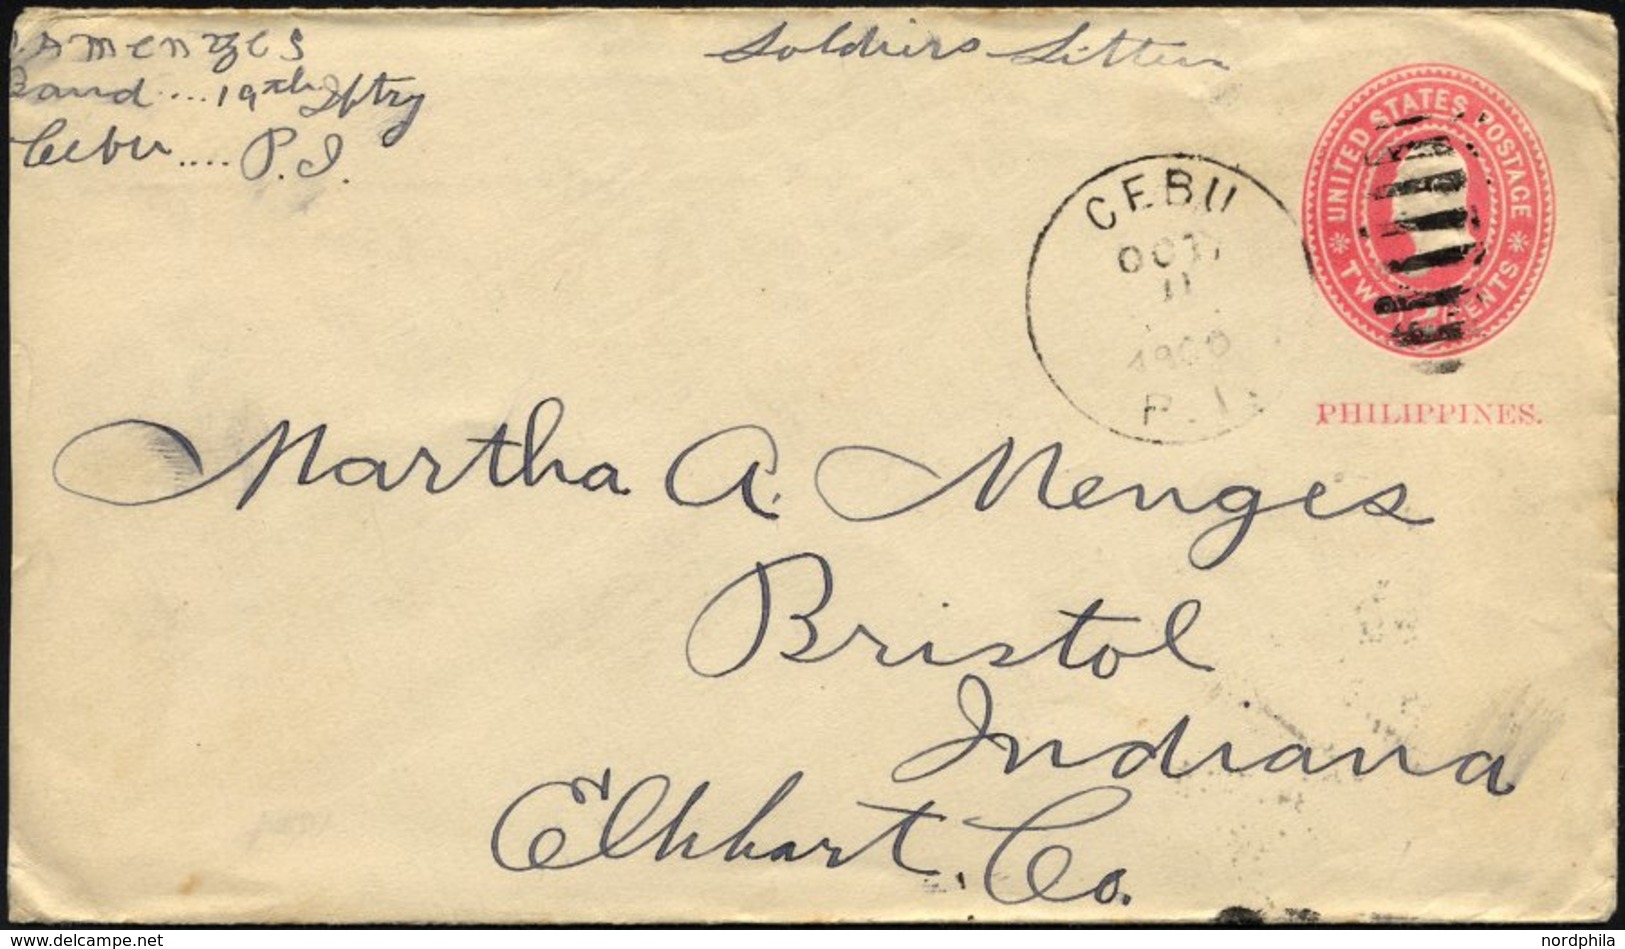 Menges
Band .... 19th Iftry
Cebu .... P.I.
Soldiers Letter
UNITED STATES POSTAGE
TWO CENTS
CEBU
OCT
11
1900
P.I.
PHILIPPINES.
Martha A. Menges
Bristol
Indiana
Elkhart, Co.
www.delcampe.net
nordphila